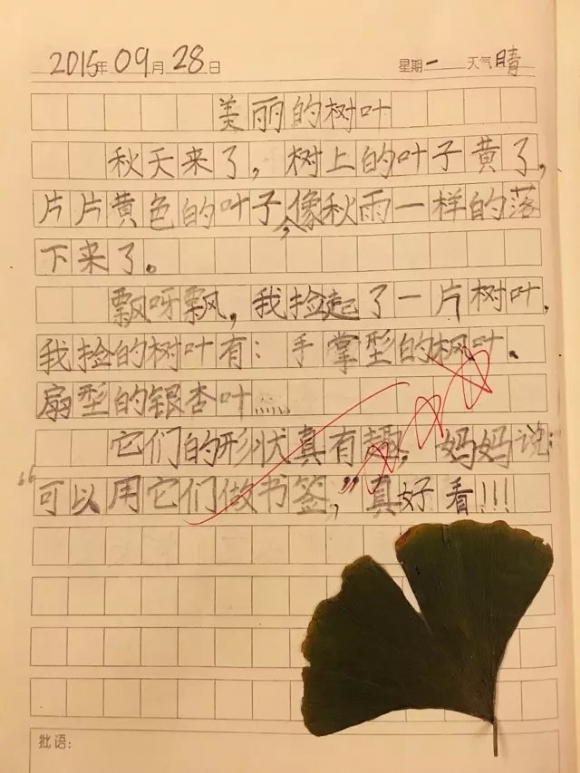 2015年09月28日 星期一 天气晴
美丽的树叶
秋天来了，树上的叶子黄了，
片片黄色的叶子，像秋雨一样的落
下来了。
飘呀飘，我捡起了一片树叶，
我捡的树叶有：手掌型的枫叶、
扇型的银杏叶……
它们的形状真有趣，妈妈说：
“可以用它们做书签，”真好看!!!
批语：